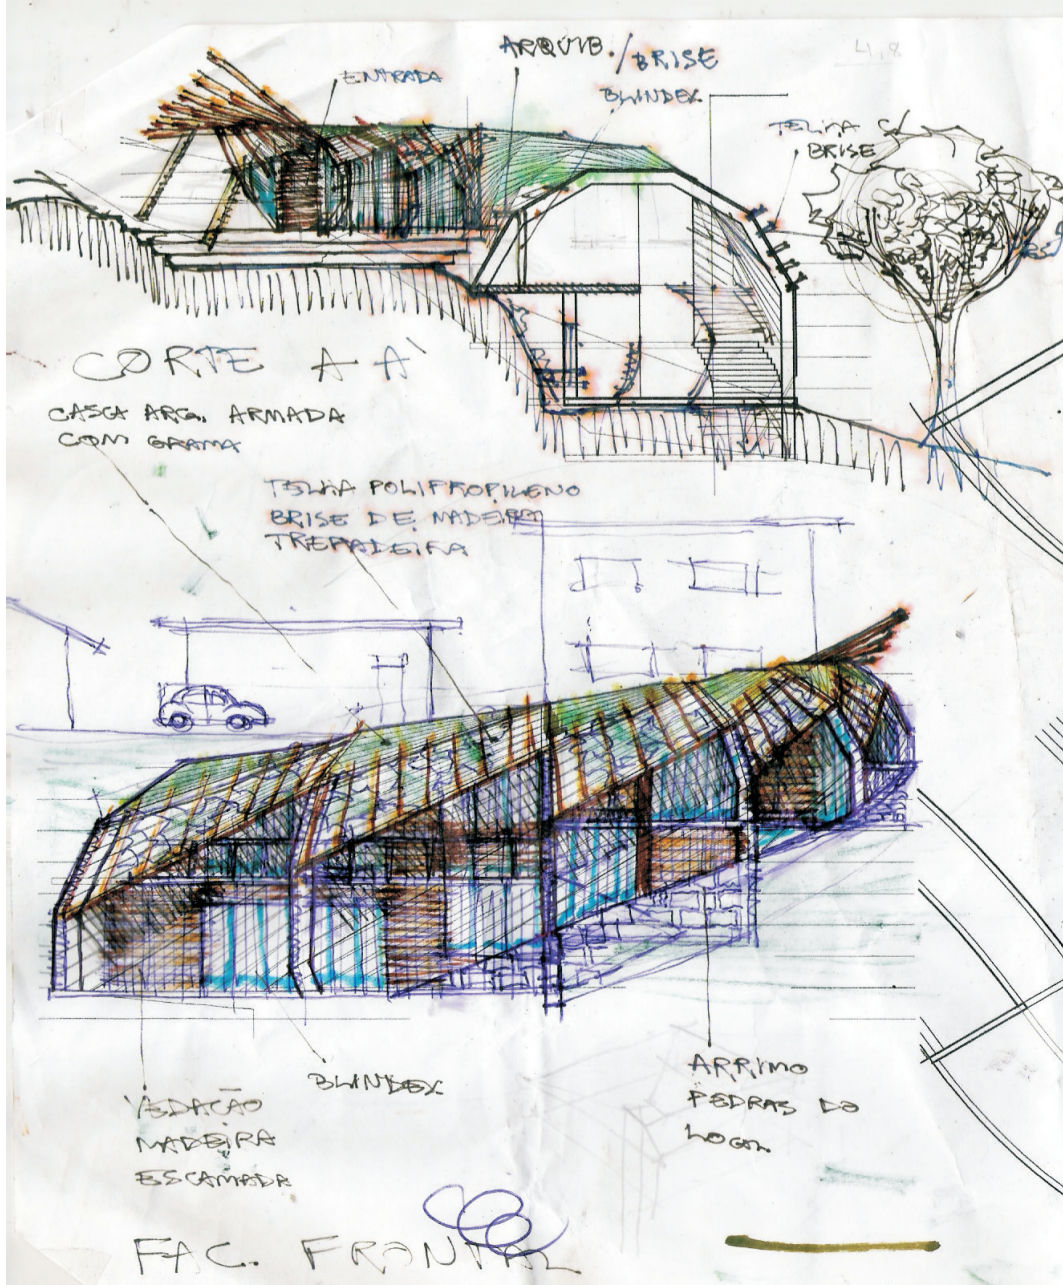 ARQUIB./BRISE
ENTRADA
BLINDEX
4,8
TELHA C/
BRISE
CORTE A A'
CASCA ARG. ARMADA
COM GRAMA
TELHA POLIPROPILENO
BRISE DE MADEIRA
TREPADEIRA
BLINDEX
VEDAÇÃO
MADEIRA
ESCAMADA
ARRIMO
PEDRAS DO
LOCAL
FAC. FRONTAL